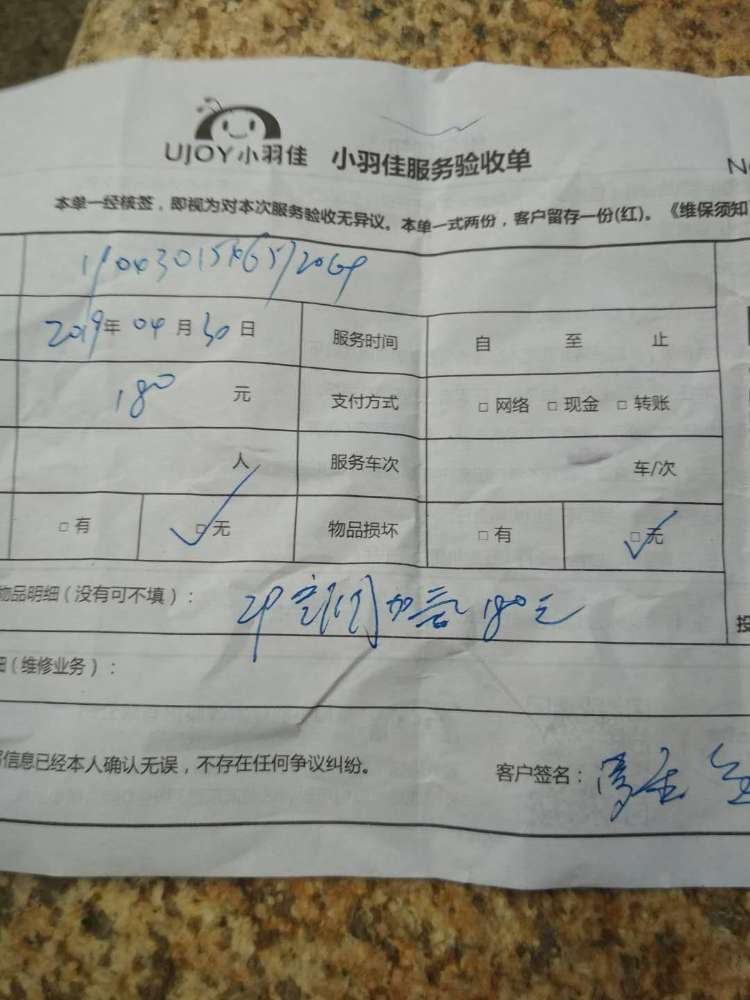 UJOY小羽佳 小羽佳服务验收单
N
本单一经核签，即视为对本次服务验收无异议。本单一式两份，客户留存一份(红)。《维保须知
2019年 04月 30日 服务时间 自 至 止
180 元 支付方式 □ 网络 □ 现金 □ 转账
人 服务车次 车/次
□ 有 □ 无 物品损坏 □ 有 □ 无
物品明细（没有可不填）： 2P 加 180元
投
细（维修业务）：
信息已经本人确认无误，不存在任何争议纠纷。 客户签名：